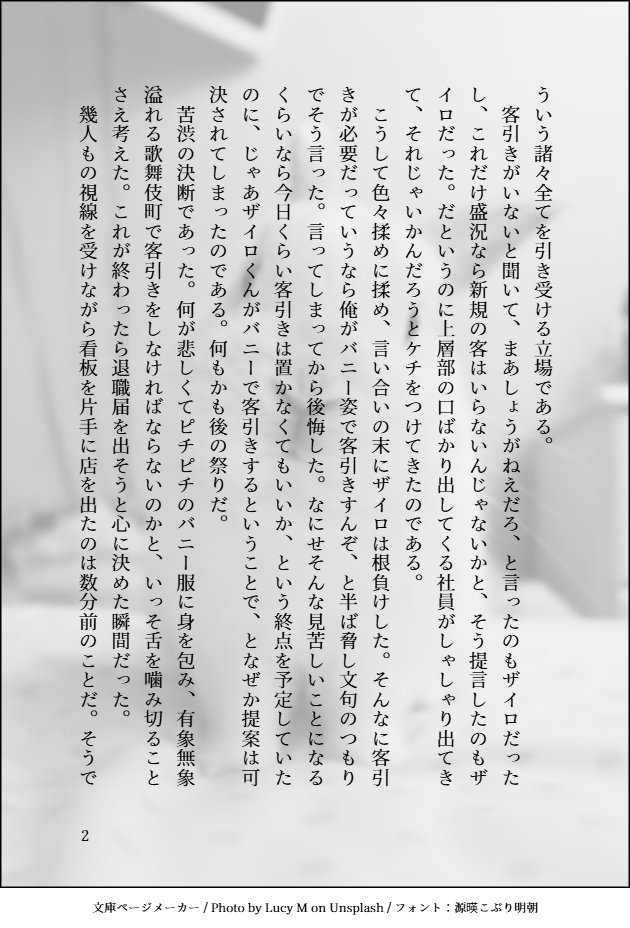 ういう諸々全てを引き受ける立場である。
　客引きがいないと聞いて、まあしょうがねえだろ、と言ったのもザイロだった
し、これだけ盛況なら新規の客はいらないんじゃないかと、そう提言したのもザ
イロだった。だというのに上層部の口ばかり出してくる社員がしゃしゃり出てき
て、それじゃいかんだろうとケチをつけてきたのである。
　こうして色々揉めに揉め、言い合いの末にザイロは根負けした。そんなに客引
きが必要だっていうなら俺がバニー姿で客引きすんぞ、と半ば脅し文句のつもり
でそう言った。言ってしまってから後悔した。なにせそんな見苦しいことになる
くらいなら今日くらい客引きは置かなくてもいいか、という終点を予定していた
のに、じゃあザイロくんがバニーで客引きするということで、となぜか提案は可
決されてしまったのである。何もかも後の祭りだ。
　苦渋の決断であった。何が悲しくてピチピチのバニー服に身を包み、有象無象
溢れる歌舞伎町で客引きをしなければならないのかと、いっそ舌を噛み切ること
さえ考えた。これが終わったら退職届を出そうと心に決めた瞬間だった。
　幾人もの視線を受けながら看板を片手に店を出たのは数分前のことだ。そうで
2
文庫ページメーカー / Photo by Lucy M on Unsplash / フォント：源暎こぶり明朝